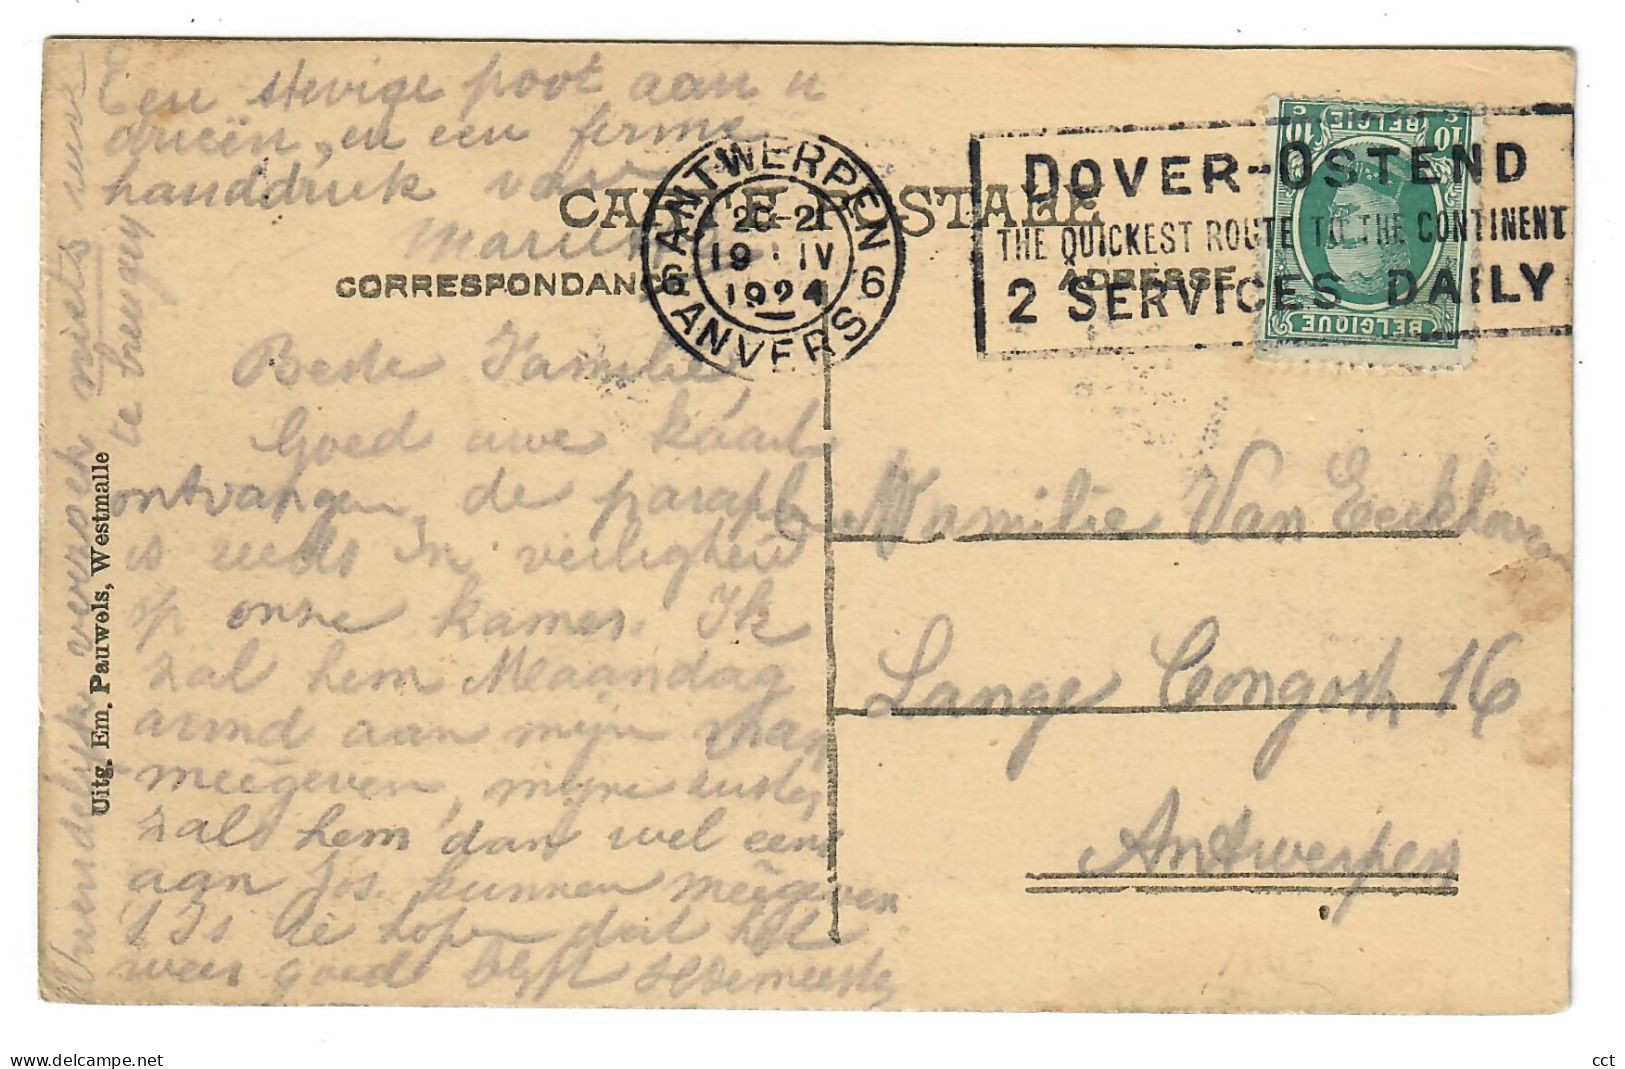 Een stevige poot aan u
drieën, en een ferme
handdruk van
CARTE POSTALE
CORRESPONDANCE
ADRESSE
ANTWERPEN
20-21
19 IV
1924
6 6
ANVERS
DOVER-OSTEND
THE QUICKEST ROUTE TO THE CONTINENT
2 SERVICES DAILY
BELGIE
10 C 10 C
BELGIQUE
Beste Familie,
Goed uwe kaart
ontvangen, de paraplu
is reeds in veiligheid
op onze kamer. Ik
zal hem Maandag
avond aan mijn
meêgeven, mijne zuster
zal hem dan wel eens
aan Jos. kunnen meêgeven
't Is te hopen dat het
weer goed blijft
Vriendelijk verzoek niets
te brengen
Uitg. Em. Pauwels, Westmalle
Familie Van Eeckhoven
Lange Congostr. 16
Antwerpen
cct
www.delcampe.net